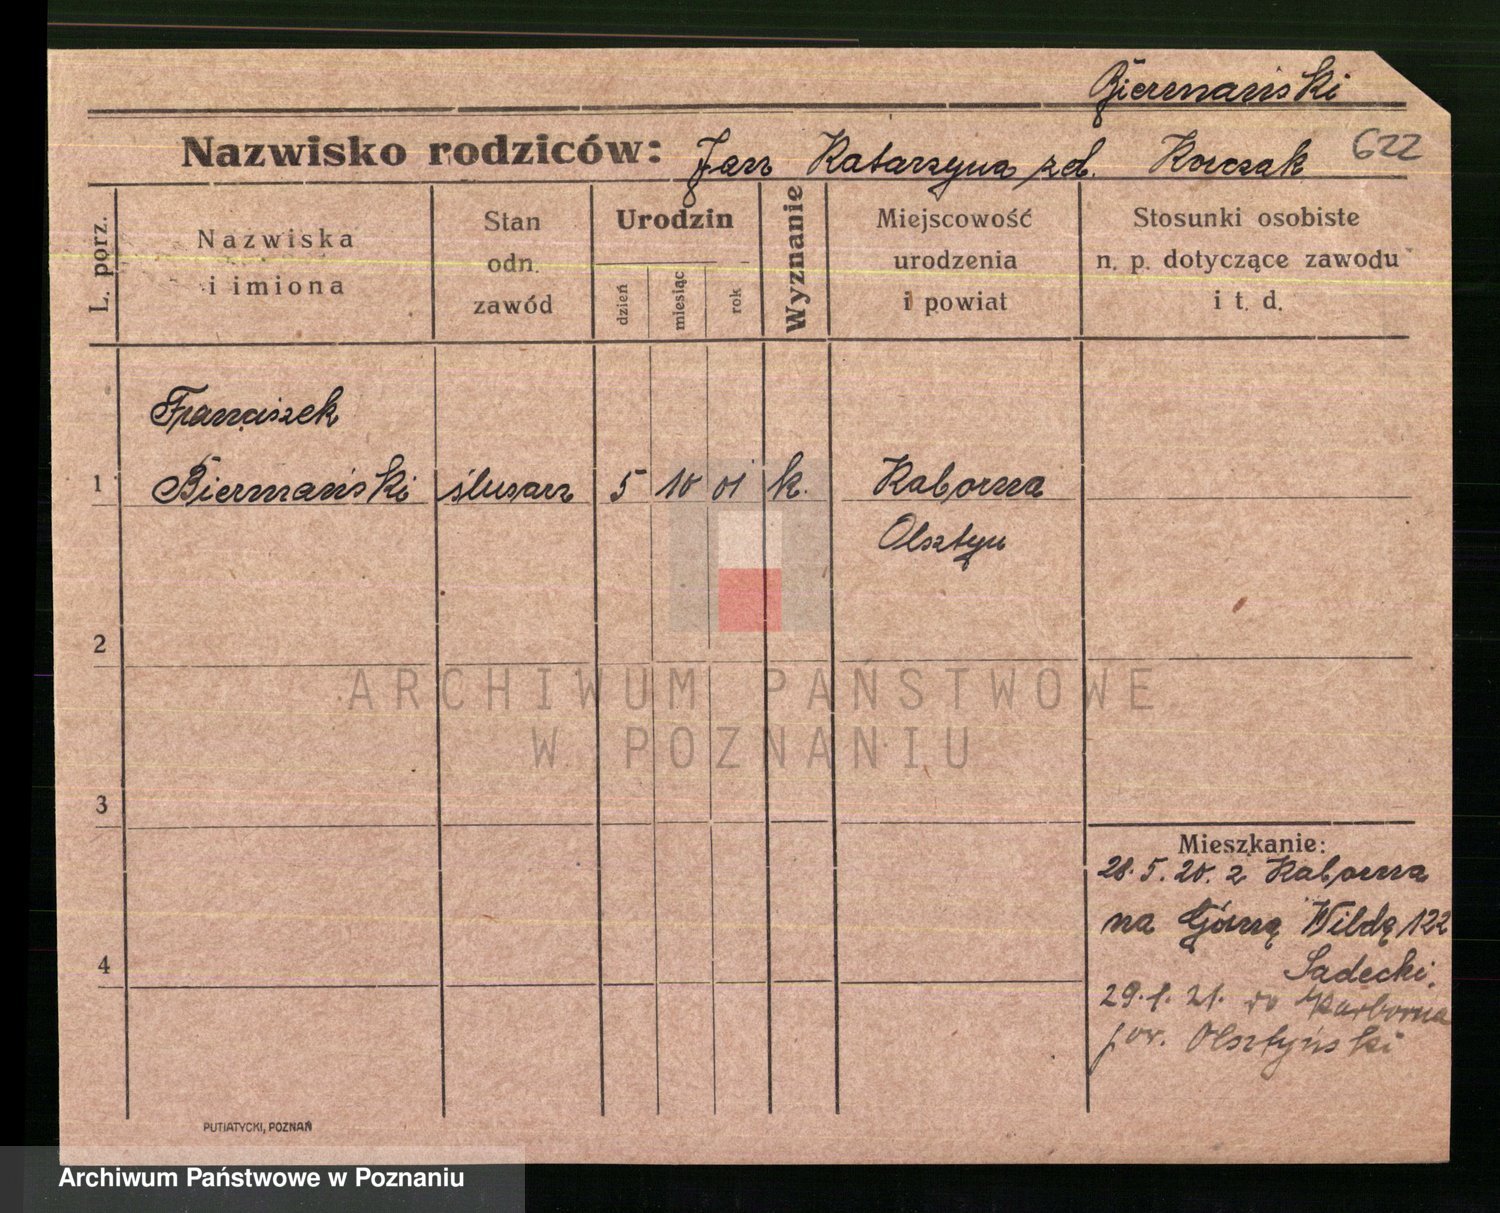 Biermański
Nazwisko rodziców: Jan Katarzyna zd. Korczak 622
L. porz.
Nazwiska
i imiona
Stan
odn.
zawód
Urodzin
dzień
miesiąc
rok
Wyznanie
Miejscowość
urodzenia
i powiat
Stosunki osobiste
n. p. dotyczące zawodu
i t. d.
Franciszek
1 Biermański ślusarz 5 10 01 k. Kaborna
Olsztyn
2
3
4
Mieszkanie:
28.5.20. z Kaborna
na Górną Wildę 122
Sadecki.
29.1.21. do Karborna
pow. Olsztyński
PUTIATYCKI, POZNAŃ
ARCHIWUM PAŃSTWOWE
W POZNANIU
Archiwum Państwowe w Poznaniu